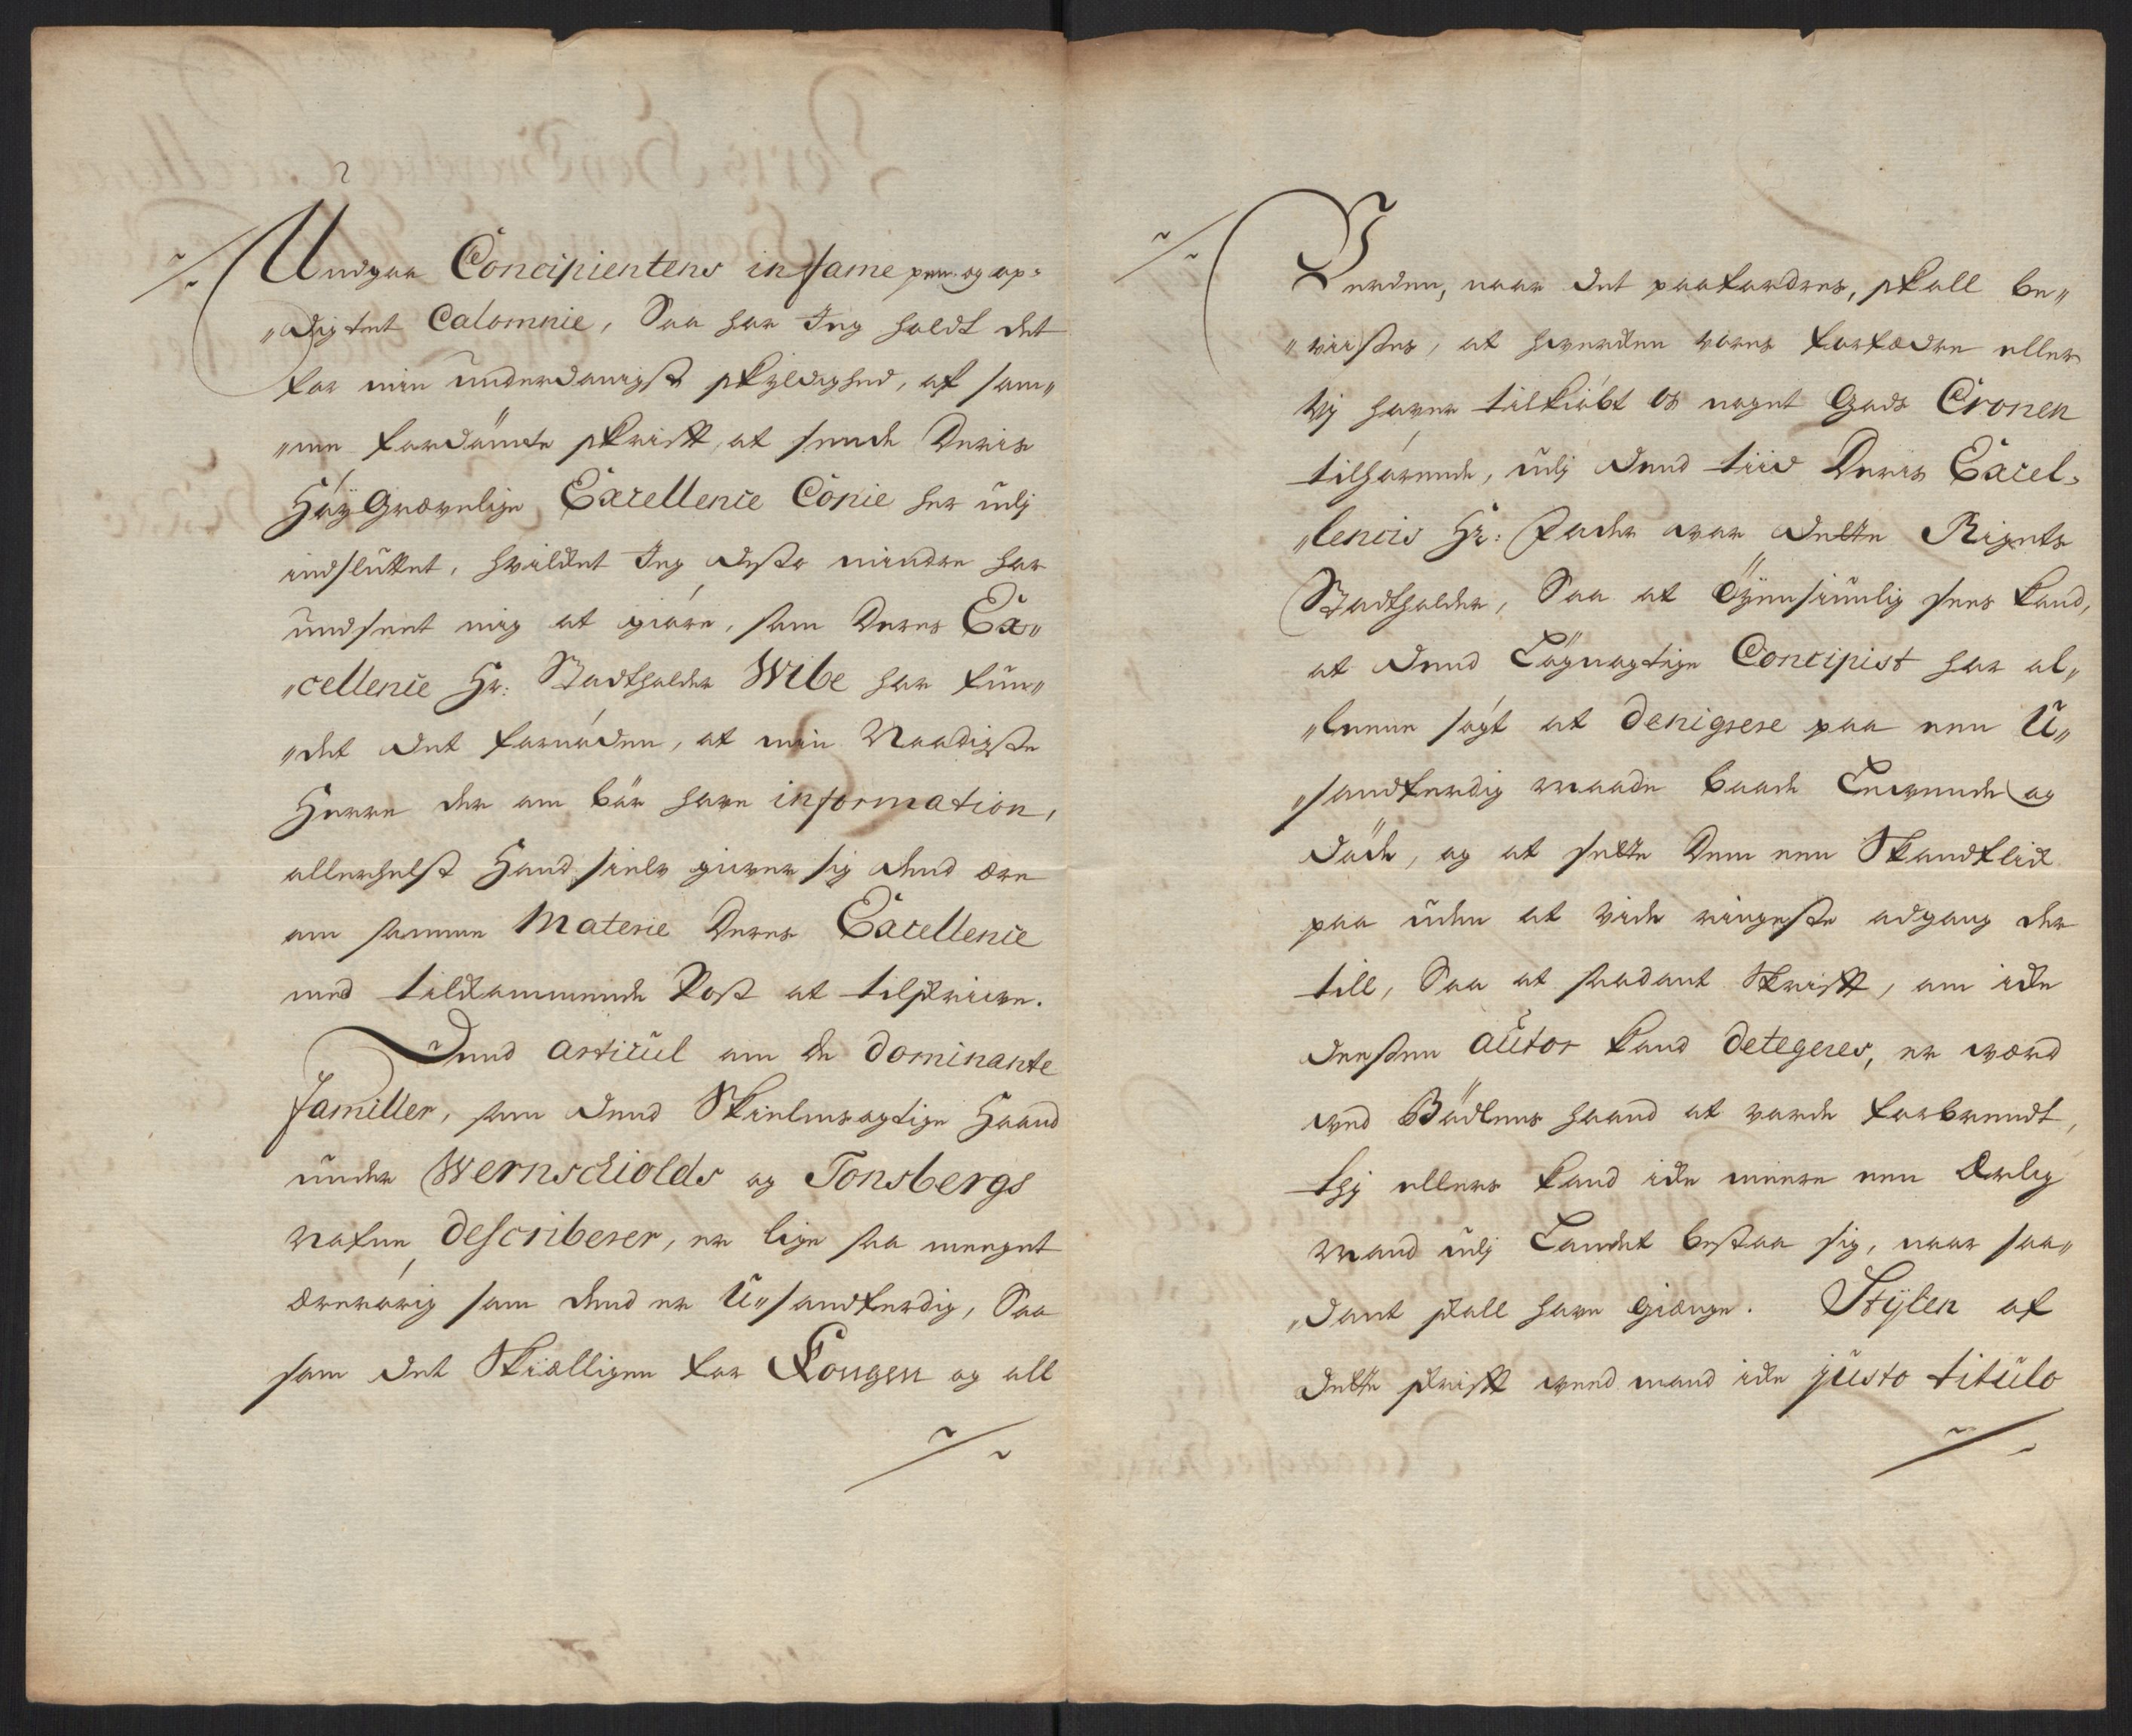 Undgaa Concipientens infame pen og op-
„digtet Calomnie, Saa har Jeg holdt det
for min underdanigst skyldighed, af sam„
„me fordömte skrifft, at sende Deris
Höÿ Grævelige Excellence Copie her udj
indsluttet, hvilcket Jeg desto mindre har
undseet mig at giöre, som Deres Ex„
„cellence Hr: Stadtholder Wibe har fun„
„det det fornöden, at min Naadigste
Herre der om bör have information,
allerhelst Hand sielv giver sig dend ære
om samme Materie Deres Excellence
med tilkommende Post at tilskrive.
Dend articul om de dominante
Familler, som dend Skielmsagtige Haand
under Wernschiolds og Tonsbergs
Nafne describerer, er lige saa meeget
ærerörig som dend er U„sandferdig, Saa
som det Skiælligen for Kongen og all
Verden, naar det paafordres, skall be„
„viisses, at hverden vores forfædre eller
Vij haver tilkiöbt os noget Gods Cronen
tilhörende, udj dend tiid Deris Excel-
„lencis Hr: Fader var dette Rigets
Stadtholder, Saa at Öÿensiunlig sees kand,
at dend Lögnagtige Concipist har al„
„leene sögt at denigrere paa een U„
„sandferdig maade baade Levende og
döde, og at sette Dem een Skandflick
paa uden at vide ringeste adgang der
till, Saa at saadant Skrifft, om icke
deessen autor kand detegeres, er værd
ved Bödlens haand at vorde forbrendt,
thj ellers kand icke meere een Ærlig
Mand udj Landet bestaa sig, naar saa„
„dant skall have Giænge. Stÿlen af
dette skrifft veed mand icke justo titulo